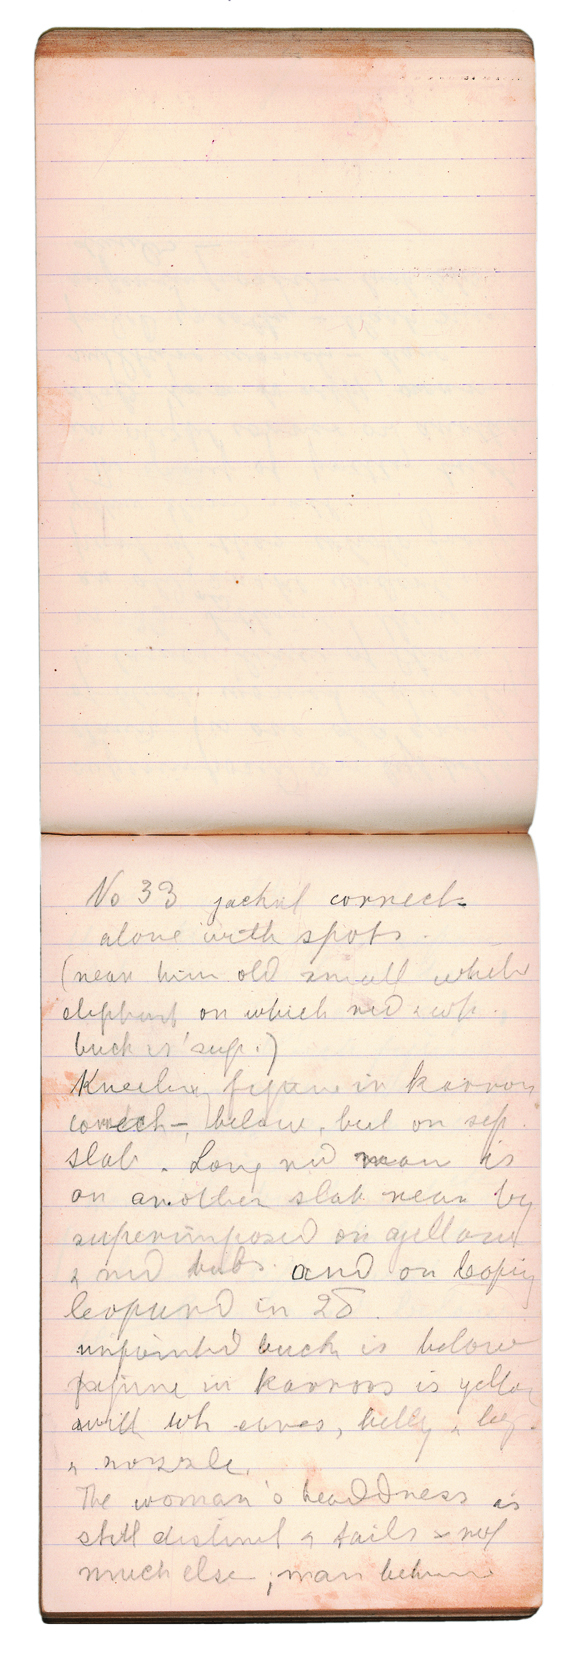 No 33 jackal correct
alone with spots.
(near him old small white
elephant on which red & wh.
buck is sup.)
Kneeling figure in kaross
correct -, below, but on sep.
slab. Long red man is
on another slab near by
superimposed on yellow
& red bubs. and on loping
leopard in 28.
unpainted buck is below
figure in kaross is yellow
with wh eares, belly & leg.
& nozzle.
The woman's headdress is
still distinct & tails - not
much else; man behind